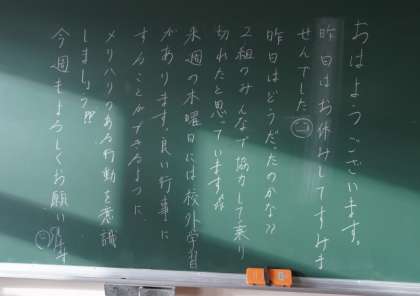 おはようございます。
昨日はお休みしてすみま
せんでした
昨日はどうだったのかな??
2組のみんなで協力して乗り
切れたと思っています
来週の木曜日には校外学習
があります。良い行事に
することができるように
メリハリのある行動を意識
しましょう!!
今週もよろしくお願い